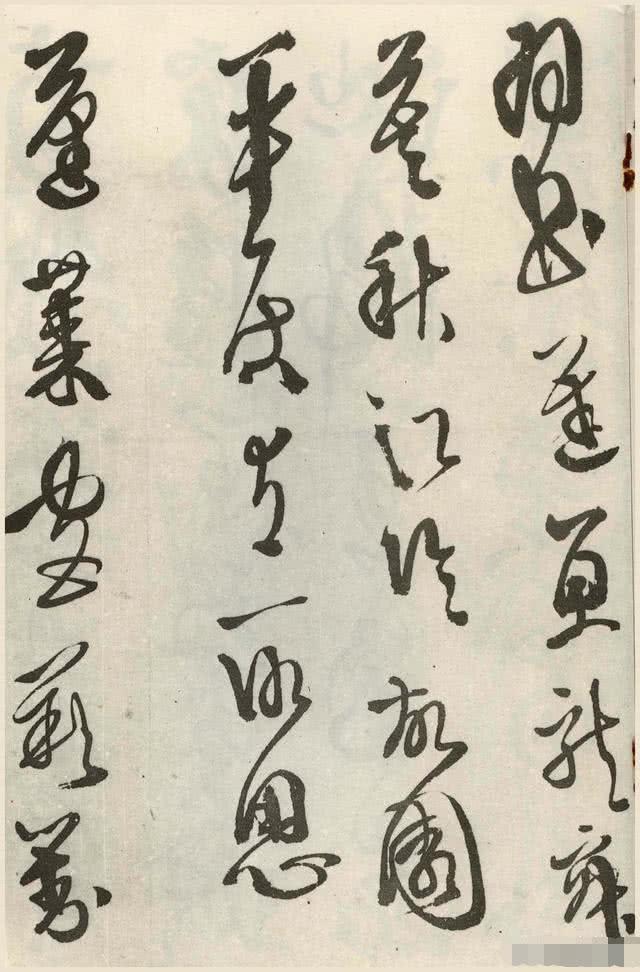 羽書遲魚龍寂
莫秋江冷故國
平居有所思
蓬萊宮闕對